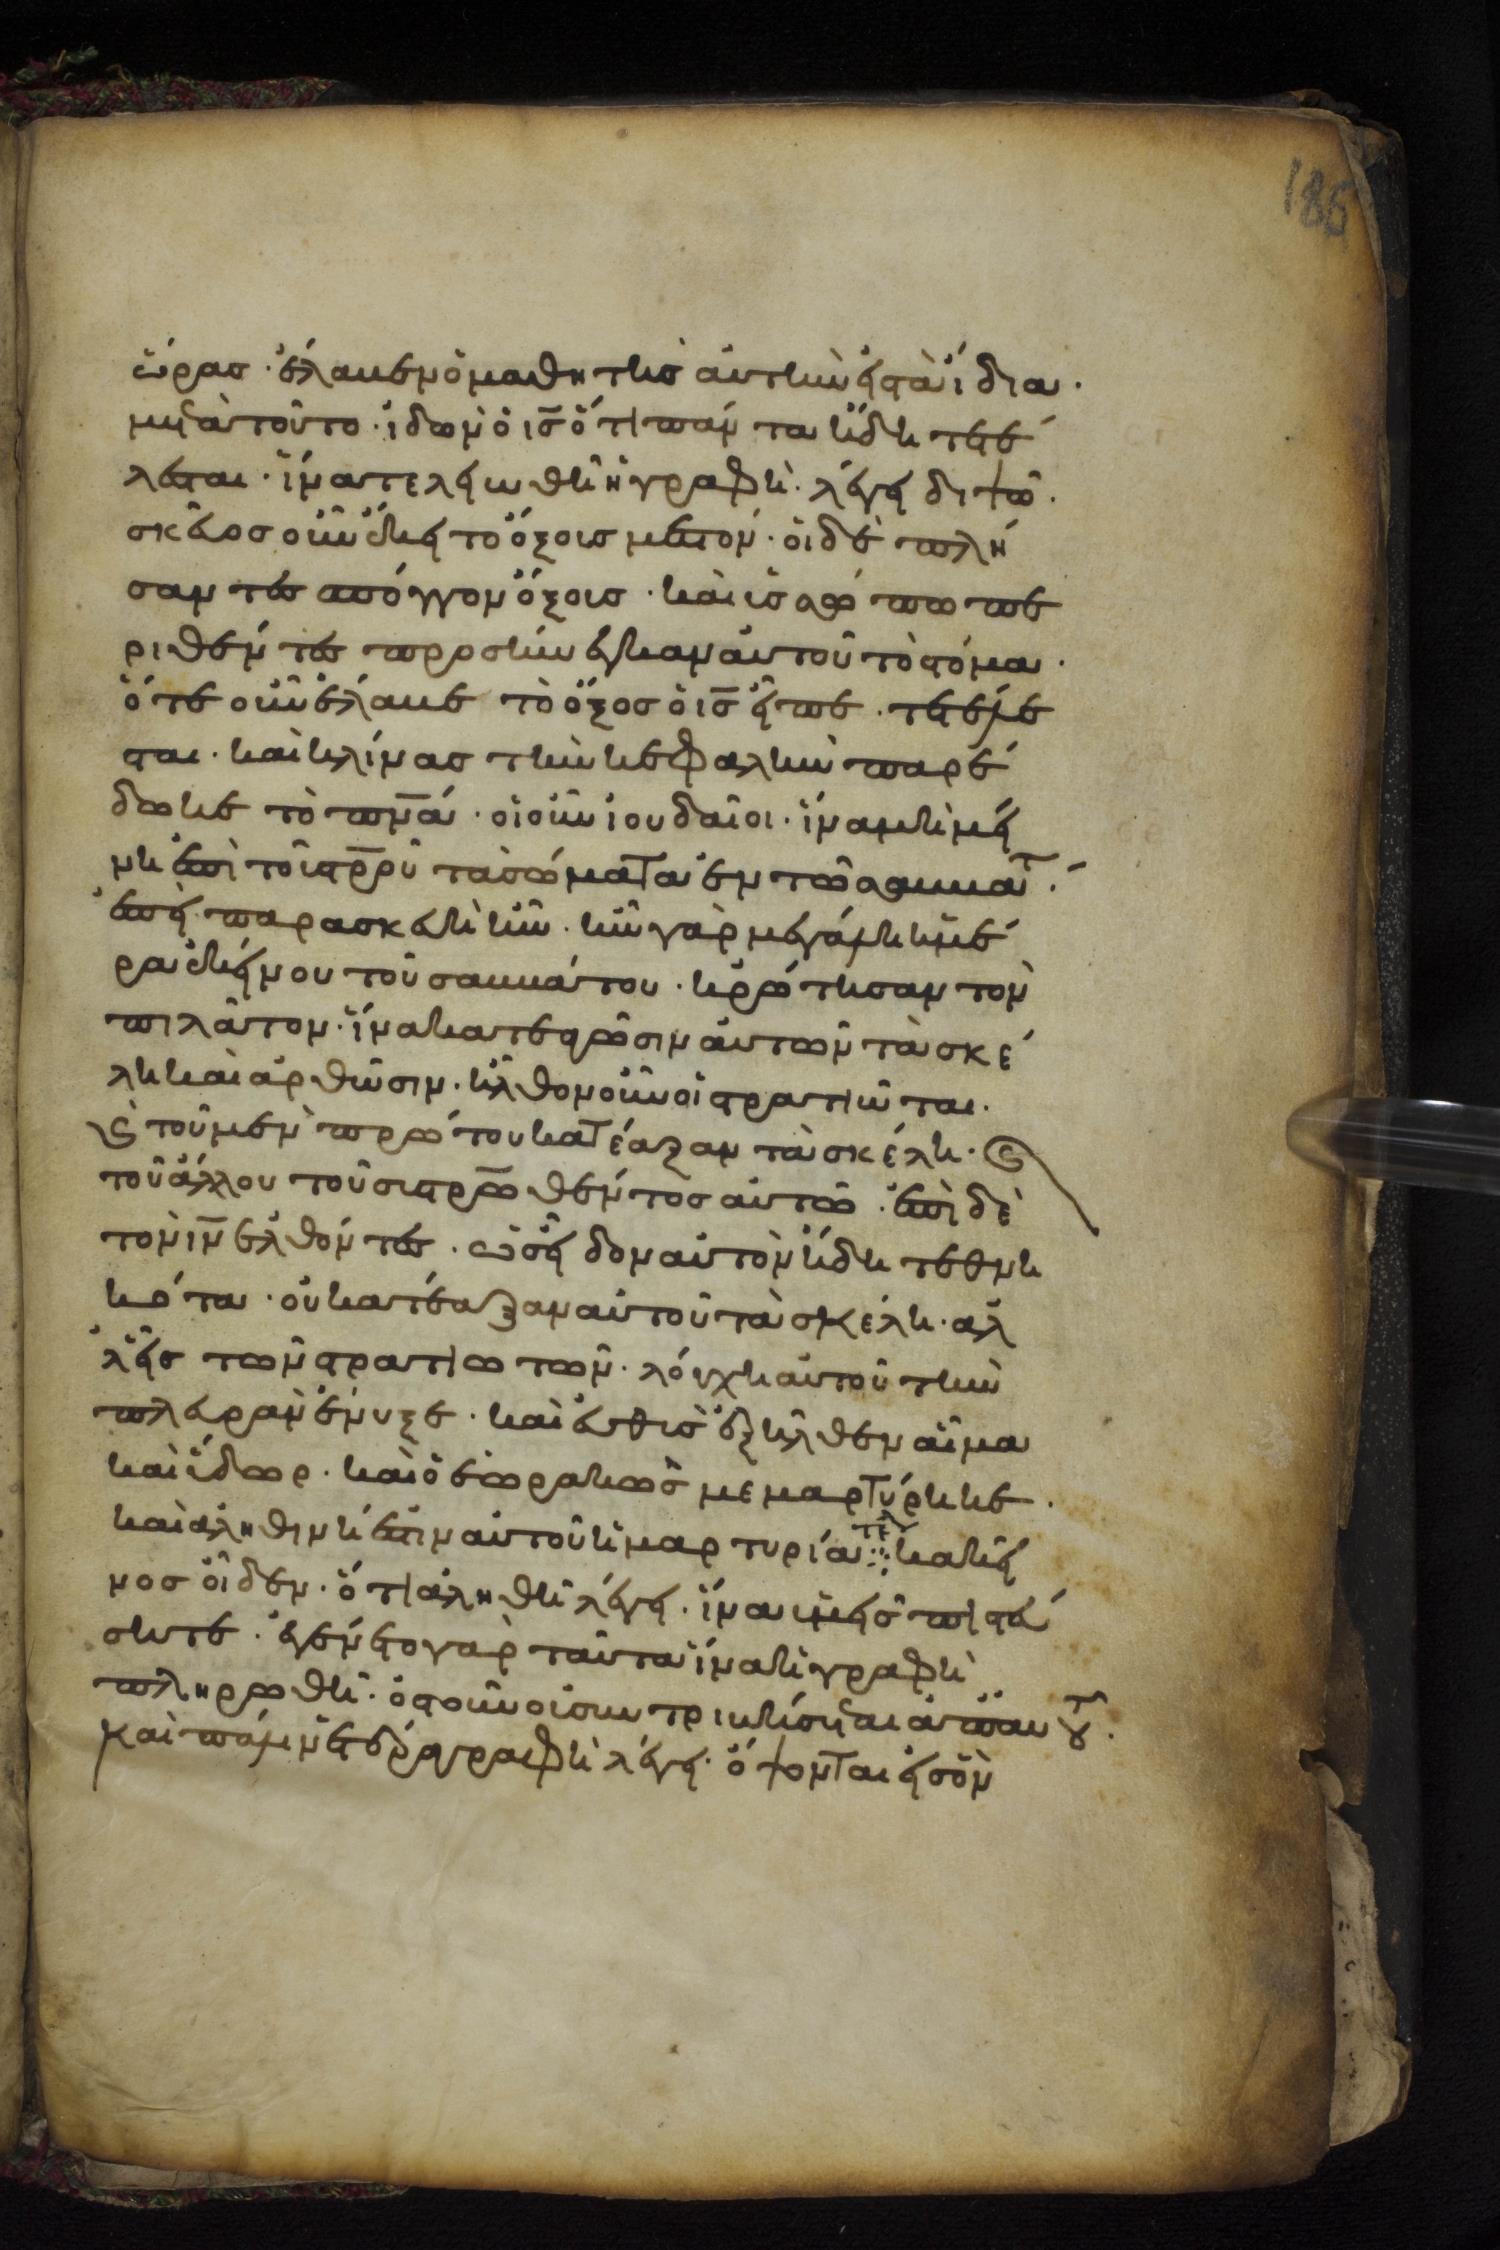 186
ὥρας · ἔλαβεν ὁ μαθητὴς αὐτὴν εἰς τὰ ἴδια ·
μετὰ τοῦτο · ἰδὼν ὁ ις̅ ὅτι πάντα ἤδη τετέ
λεσται · ἵνα τελειωθῆ ἡ γραφὴ · λέγει διψῶ ·
σκεύος οὖν ἔκειτο ὄξους μεστόν · οἱ δὲ πλή
σαντες σπόγγον ὄξους · καὶ ὑσσώπω πε
ριθέντες προσήνεγκαν αὐτοῦ τὸ στόμα ·
ὅτε οὖν ἔλαβε τὸ ὄξος ὁ ις̅ εἶπε · τετέλε
σται · καὶ κλίνας τὴν κεφαλὴν παρέ
δωκε τὸ πν̅α · οἱ οὖν ἰουδαῖοι · ἵνα μὴ μεί
νη ἐπὶ τοῦ στρ̅ου τὰ σώματα ἐν τῶ σαββάτ ·
ἐπεὶ παρασκευὴ ἦν · ἦν γὰρ μεγάλη ἡ ἡμέ
ρα ἐκείνου τοῦ σαββάτου · ἠρώτησαν τὸν
πιλᾶτον · ἵνα κατεαγῶσιν αὐτῶν τὰ σκέ
λη καὶ ἀρθῶσιν · ἦλθον οὖν οἱ στρατιῶται ·
ϗ τοῦ μὲν πρώτου κατέαξαν τὰ σκέλη · ϗ
τοῦ ἄλλου τοῦ συστρω̅θέντος αὐτῶ · ἐπὶ δὲ
τὸν ιν̅ ἐλθόντες · ὡς εἶδον αὐτὸν ἤδη τεθνη
κότα · οὐ κατέαξαν αὐτοῦ τὰ σκέλη · ἀλ
λ εἷς τῶν στρατιωτῶν · λόγχη αὐτοῦ τὴν
πλευρὰν ἔνυξε · καὶ εὐθὺς ἐξῆλθεν αἷμα
καὶ ὕδωρ · καὶ ὁ ἑωρακὼς μεμαρτύρηκε ·
καὶ ἀληθινή ἐστιν αὐτοῦ ἡ μαρτυρία τελ ⁘ κακεῖ
νος οἶδεν · ὅτι ἀληθῆ λέγει · ἵνα ὑμεῖς πιστεύ
σητε · ἐγένετο γὰρ ταῦτα ἵνα ἡ γραφὴ
πληρωθῆ · ὀστοῦν οὐ συντριβήσεται ἀπ αυτου ·
καὶ πάλιν ἑτέρα γραφὴ λέγει · ὄψονται εἰς ὃν